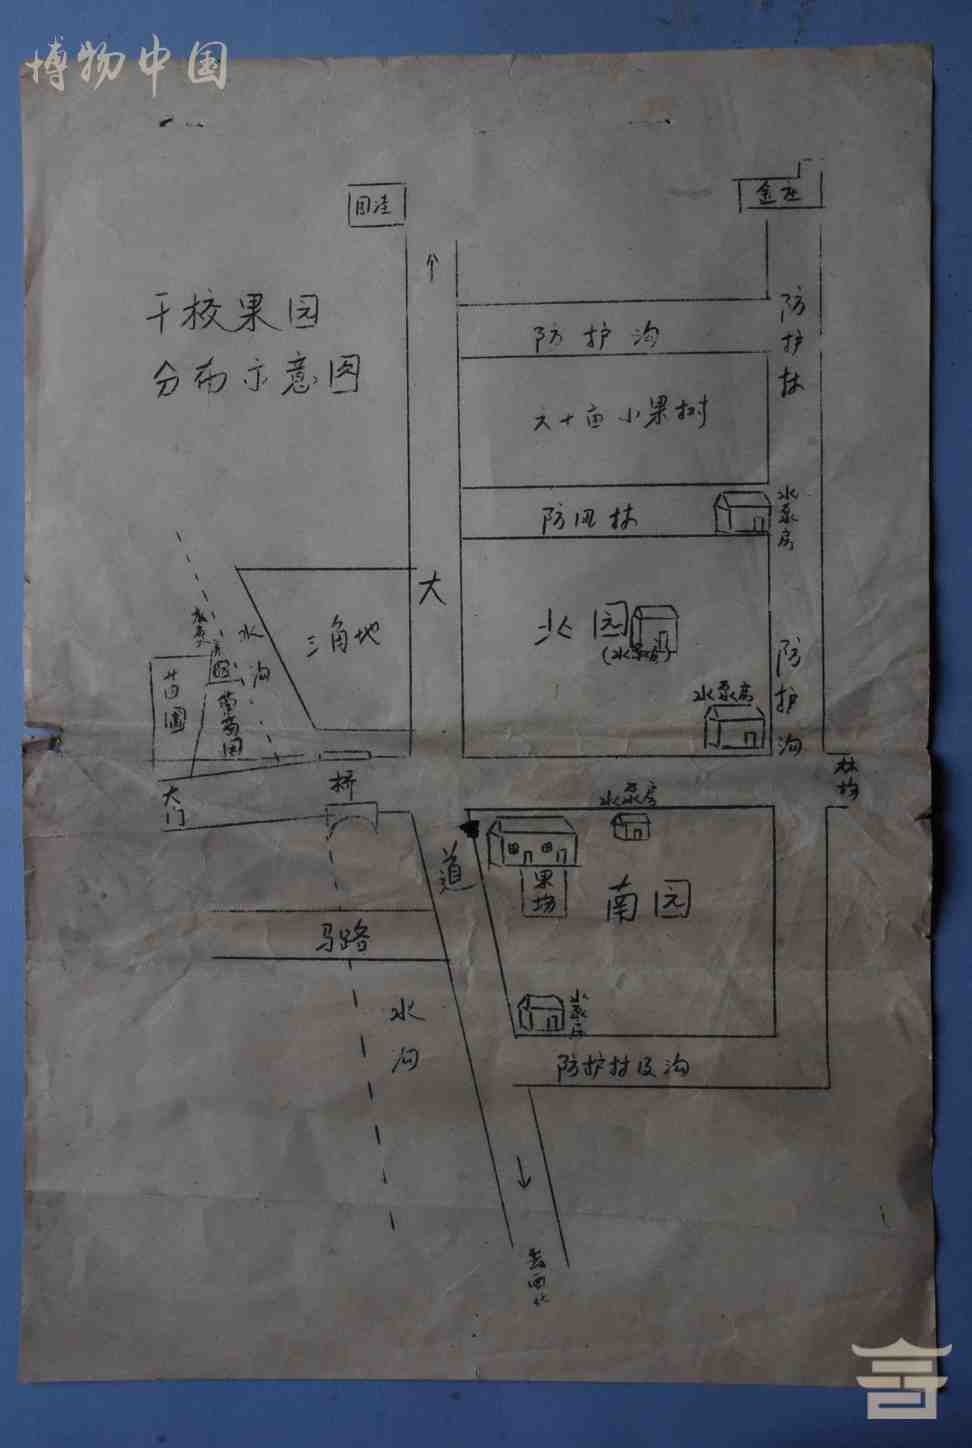 博物中国
金庄
干校果园
分布示意图
防护沟
防护林
六十亩小果树
防风林
水泵房
三角地
大
北园
(水泵房)
水沟
葡萄园
水泵房
防护沟
桥
大门
水泵房
林场
道
果场
南园
马路
水泵房
水沟
防护林及沟